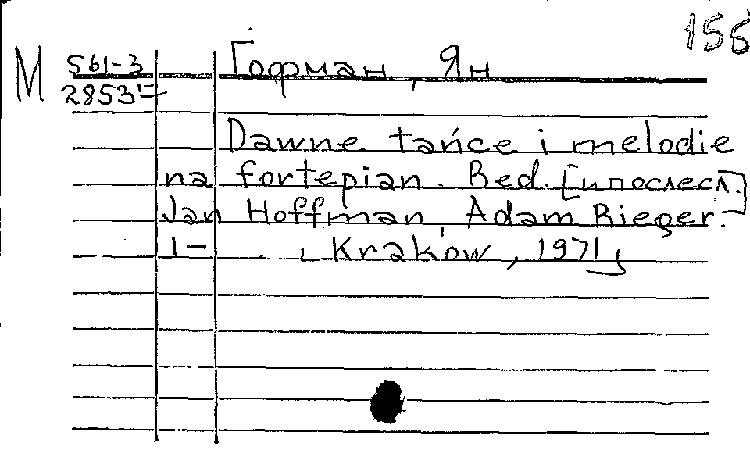 155
М 561-3 Гофман, Ян
2853
Dawne tańce i melodie
na fortepian. Red. [и послесл.]
Jan Hoffman, Adam Rieger.
1- Kraków, 1971